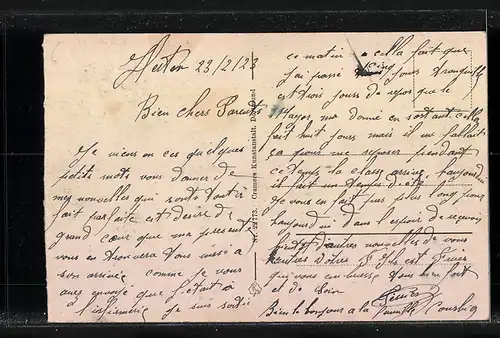 23/2/23
Bien chers Parents
Je viens en ces quelques
petits mots vous donner de
mes nouvelles qui sont tout à
fait parfaite et désire de
grand cœur que ma présente
vous en trouvera tous aussi a
son arrivée comme je vous
avez envoyé que j'était à
l'infirmerie je suis sortie
Nr. 22773. Cramers Kunstanstalt, Dortmund
ce matin cella fait que
j'ai passé cinq jours tranquille
et trois jours de repos que le
Major ma donné en sortant cella
fait huit jours mais il me fallait
ça pour me reposer pendant
ce temps la class arrive, haujourdui
il fait un temps d'été
Je vous en fait pas plus long pour
haujourdui dans l'espoir de recevoir
bientot d'autres nouvelles de vous
autres Votre Fils et Frère
qui vous embrasse tous bien fort
et de loin
Bien le bonjour a la famille